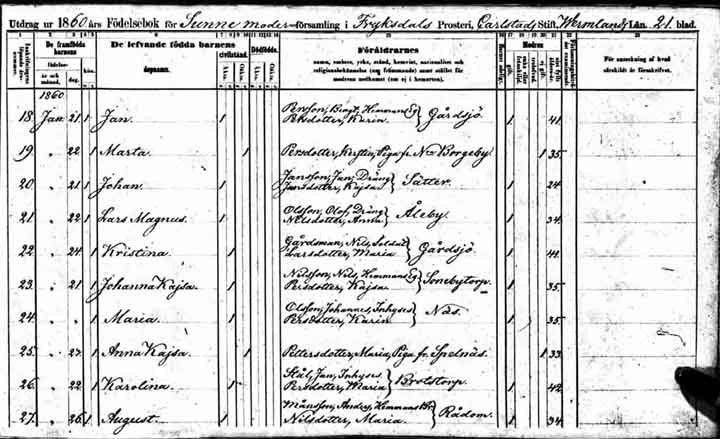 Utdrag ur 1860 års Födelsebok för Sunne moder-församling i Fryksdals Prosteri, Carlstads Stift, Wermlands Län. 21. blad.
De framfödda barnens
De lefvande födda barnens
Dödfödde.
Föräldrarnes
Modren
För anteckning af hvad
särskildt är föreskrifvet.
födelse-
dopnamn.
civilstånd.
namn, embete, yrke, stånd, hemvist, nationalitet och
religionsbekännelse (om främmande) samt enklist för
modren nedkomst (om ej i hemorten).
år och månad.
dag.
kön.
1860
18 Jan 21 1 Jan 1 Persson, Bengt, Hemmans Eg Persdotter, Karin } Gårdsjö 1 41
19 " 22 1 Marta 1 Persdotter, Kerstin, Piga fr N:o Borgeby 1 35
20 " 21 1 Johan 1 Jansson, Jan, Dräng Jansdotter, Kajsa } Sätter 1 24
21 " 22 1 Lars Magnus. 1 Olsson, Olof, Dräng Nilsdotter, Anna } Åleby. 1 34
22 " 24 1 Kristina 1 Gårdsman, Nils, Soldat Larsdotter, Maria } Gårdsjö 1 40
23 " 21 1 Johanna Kajsa. 1 Nilsson, Nils, Hemmans Eg Persdotter, Kajsa } Sonebytorp. 1
24 " " 1 Maria 1 Olsson, Johannes, Inhyses Persdotter, Karin } Näs. 1
25 " 27 1 Anna Kajsa. 1 Pettersdotter, Maria, Piga fr. Spelnäs. 1 33
26 " 22 1 Karolina. 1 Skål, Jan, Inhyses Persdotter, Maria } Brotstorp. 1 42
27 " 26 1 August. 1 Månsson, Anders, Hemmans Br. Nilsdotter, Maria. } Rådom. 1 34